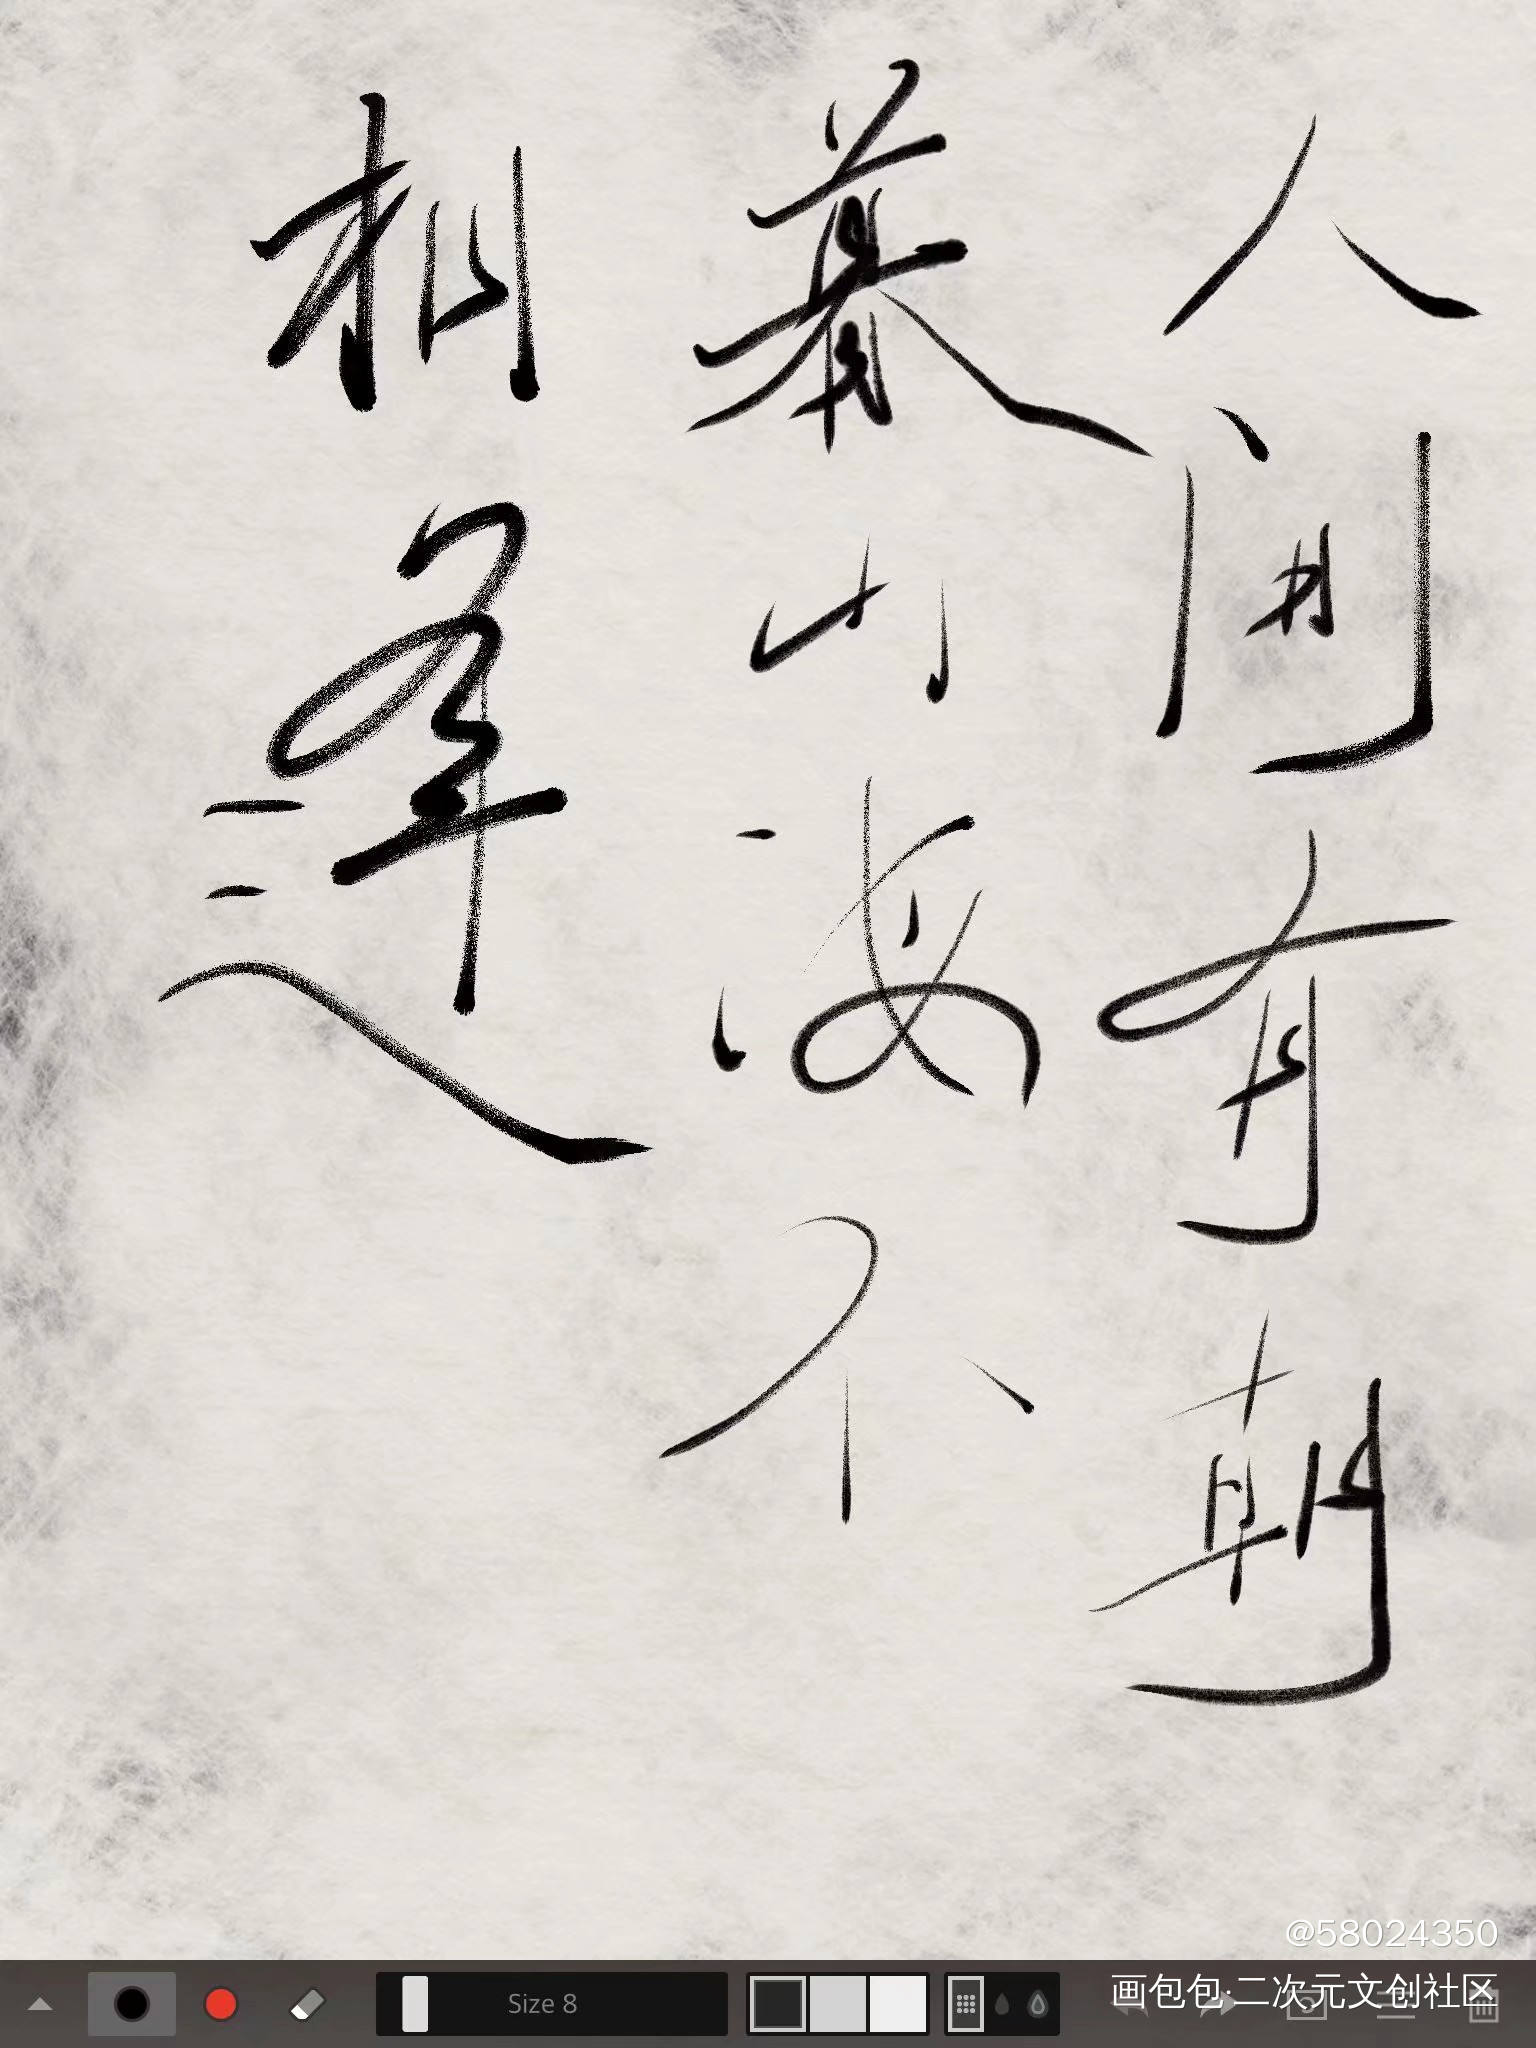 人间有朝
暮山海不
相逢
@58024350
画包包·二次元文创社区
Size 8